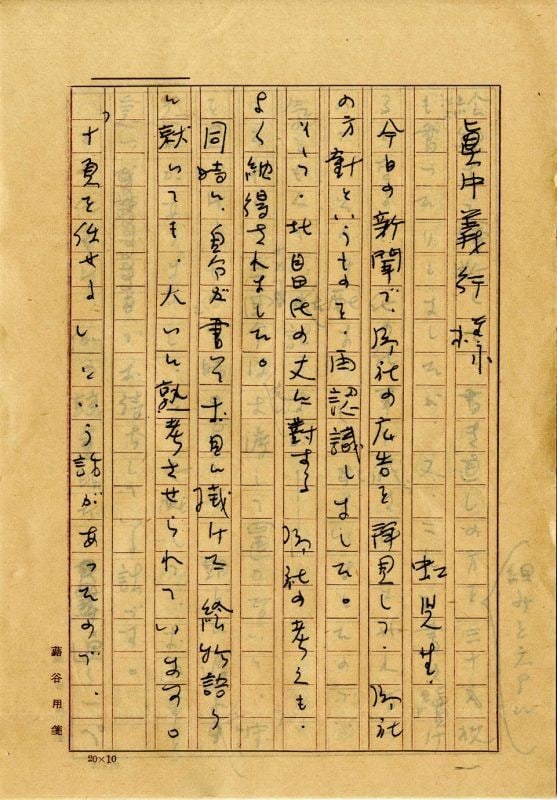 眞中義行様
虹児生.
今日の新聞で、御社の広告を拝見して、御社
の方針というものを、再認識しました。
そして、氏の文に對する 御社の考えも、
よく納得されました。
同時に、自分が書いてお目に掛けた 絵物語り
に就いても、大いに熟考させられています。
十頁を任せよ という話があったので、
蕗谷用箋
20×10